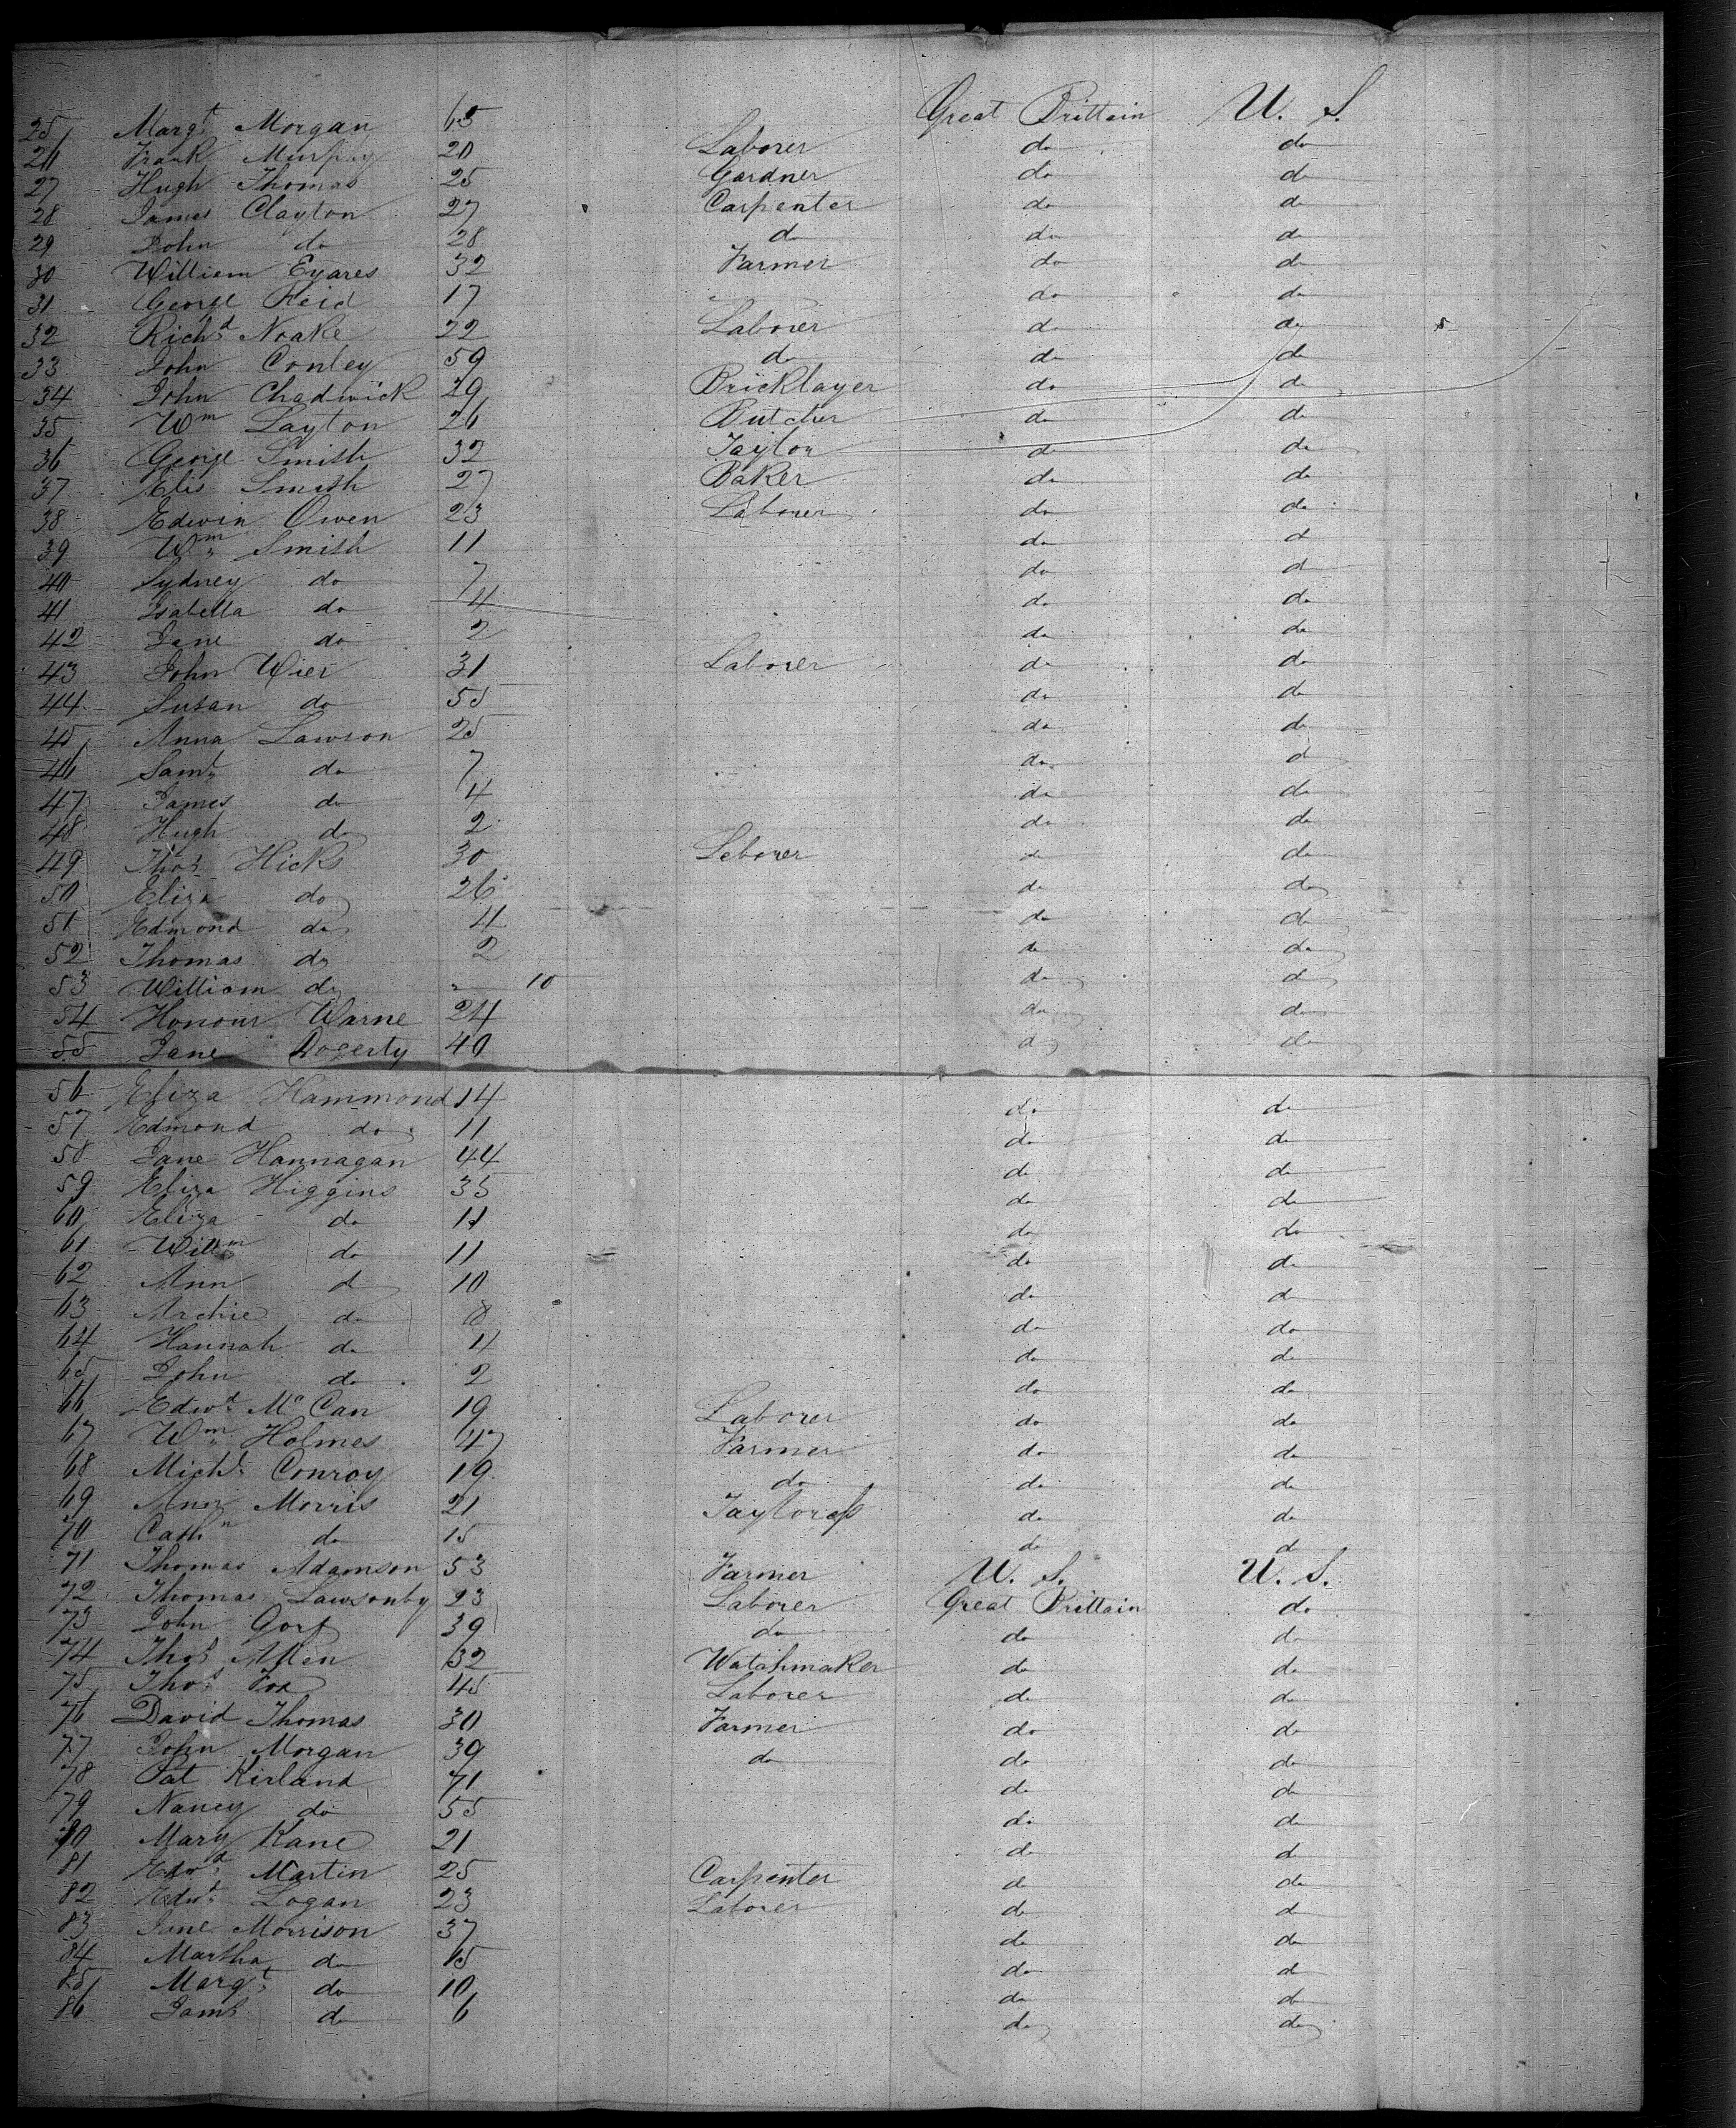 25 Margt Morgan 65 Great Brittain U. S.
26 Frank Murpey 20 Laborer do do
27 Hugh Thomas 25 Gardner do do
28 James Clayton 27 Carpenter do do
29 John do 28 do do do
30 William Eyares 32 Farmer do do
31 George Reid 17 do do
32 Richd Noake 22 Laborer do do
33 John Conley 59 do do do
34 John Chadwick 29 Bricklayer do do
35 Wm Layton 26 Butcher do do
36 George Smith 32 Taylor do do
37 Elis Smith 27 Baker do do
38 Edwin Owen 23 Laborer do do
39 Wm Smith 11 do do
40 Sydney do 7 do do
41 Isabella do 4 do do
42 Jane do 2 do do
43 John Wier 31 Laborer do do
44 Susan do 55 do do
45 Anna Lawson 25 do do
46 Saml do 7 do do
47 James do 4 do do
48 Hugh do 2 do do
49 Thos Hicks 30 Leborer do do
50 Eliza do 26 do do
51 Edmond do 4 do do
52 Thomas do 2 do do
53 William do " 10 do do
54 Honour Warne 24 do do
55 Jane Dogerty 40 do do
56 Eliza Hammond 14 do do
57 Edmond do 11 do do
58 Jane Hannagan 44 do do
59 Eliza Higgins 35 do do
60 Eliza do 11 do do
61 Willm do 11 do do
62 Ann do 10 do do
63 Archie do 8 do do
64 Hannah do 4 do do
65 John do 2 do do
66 Edwd McCan 19 Laborer do do
67 Wm Holmes 47 Farmer do do
68 Michl Conroy 19 do do do
69 Morris 21 Tayloress do do
70 Cathn do 15 do do
71 Thomas Adamson 53 Farmer U. S. U. S.
72 Thomas Lawsonby 23 Laborer Great Brittain do
73 John Gorf 39 do do do
74 Thos Allen 32 Watchmaker do do
75 Thos Fox 45 Laborer do do
76 David Thomas 30 Farmer do do
77 John Morgan 39 do do do
78 Pat Kirland 71 do do
79 Nancy do 55 do do
80 Mary Kane 21 do do
81 Edwd Martin 25 Carpenter do do
82 Edwd Logan 23 Laborer do do
83 Jane Morrison 37 do do
84 Martha do 15 do do
85 Margt do 10 do do
86 Jams do 6 do do